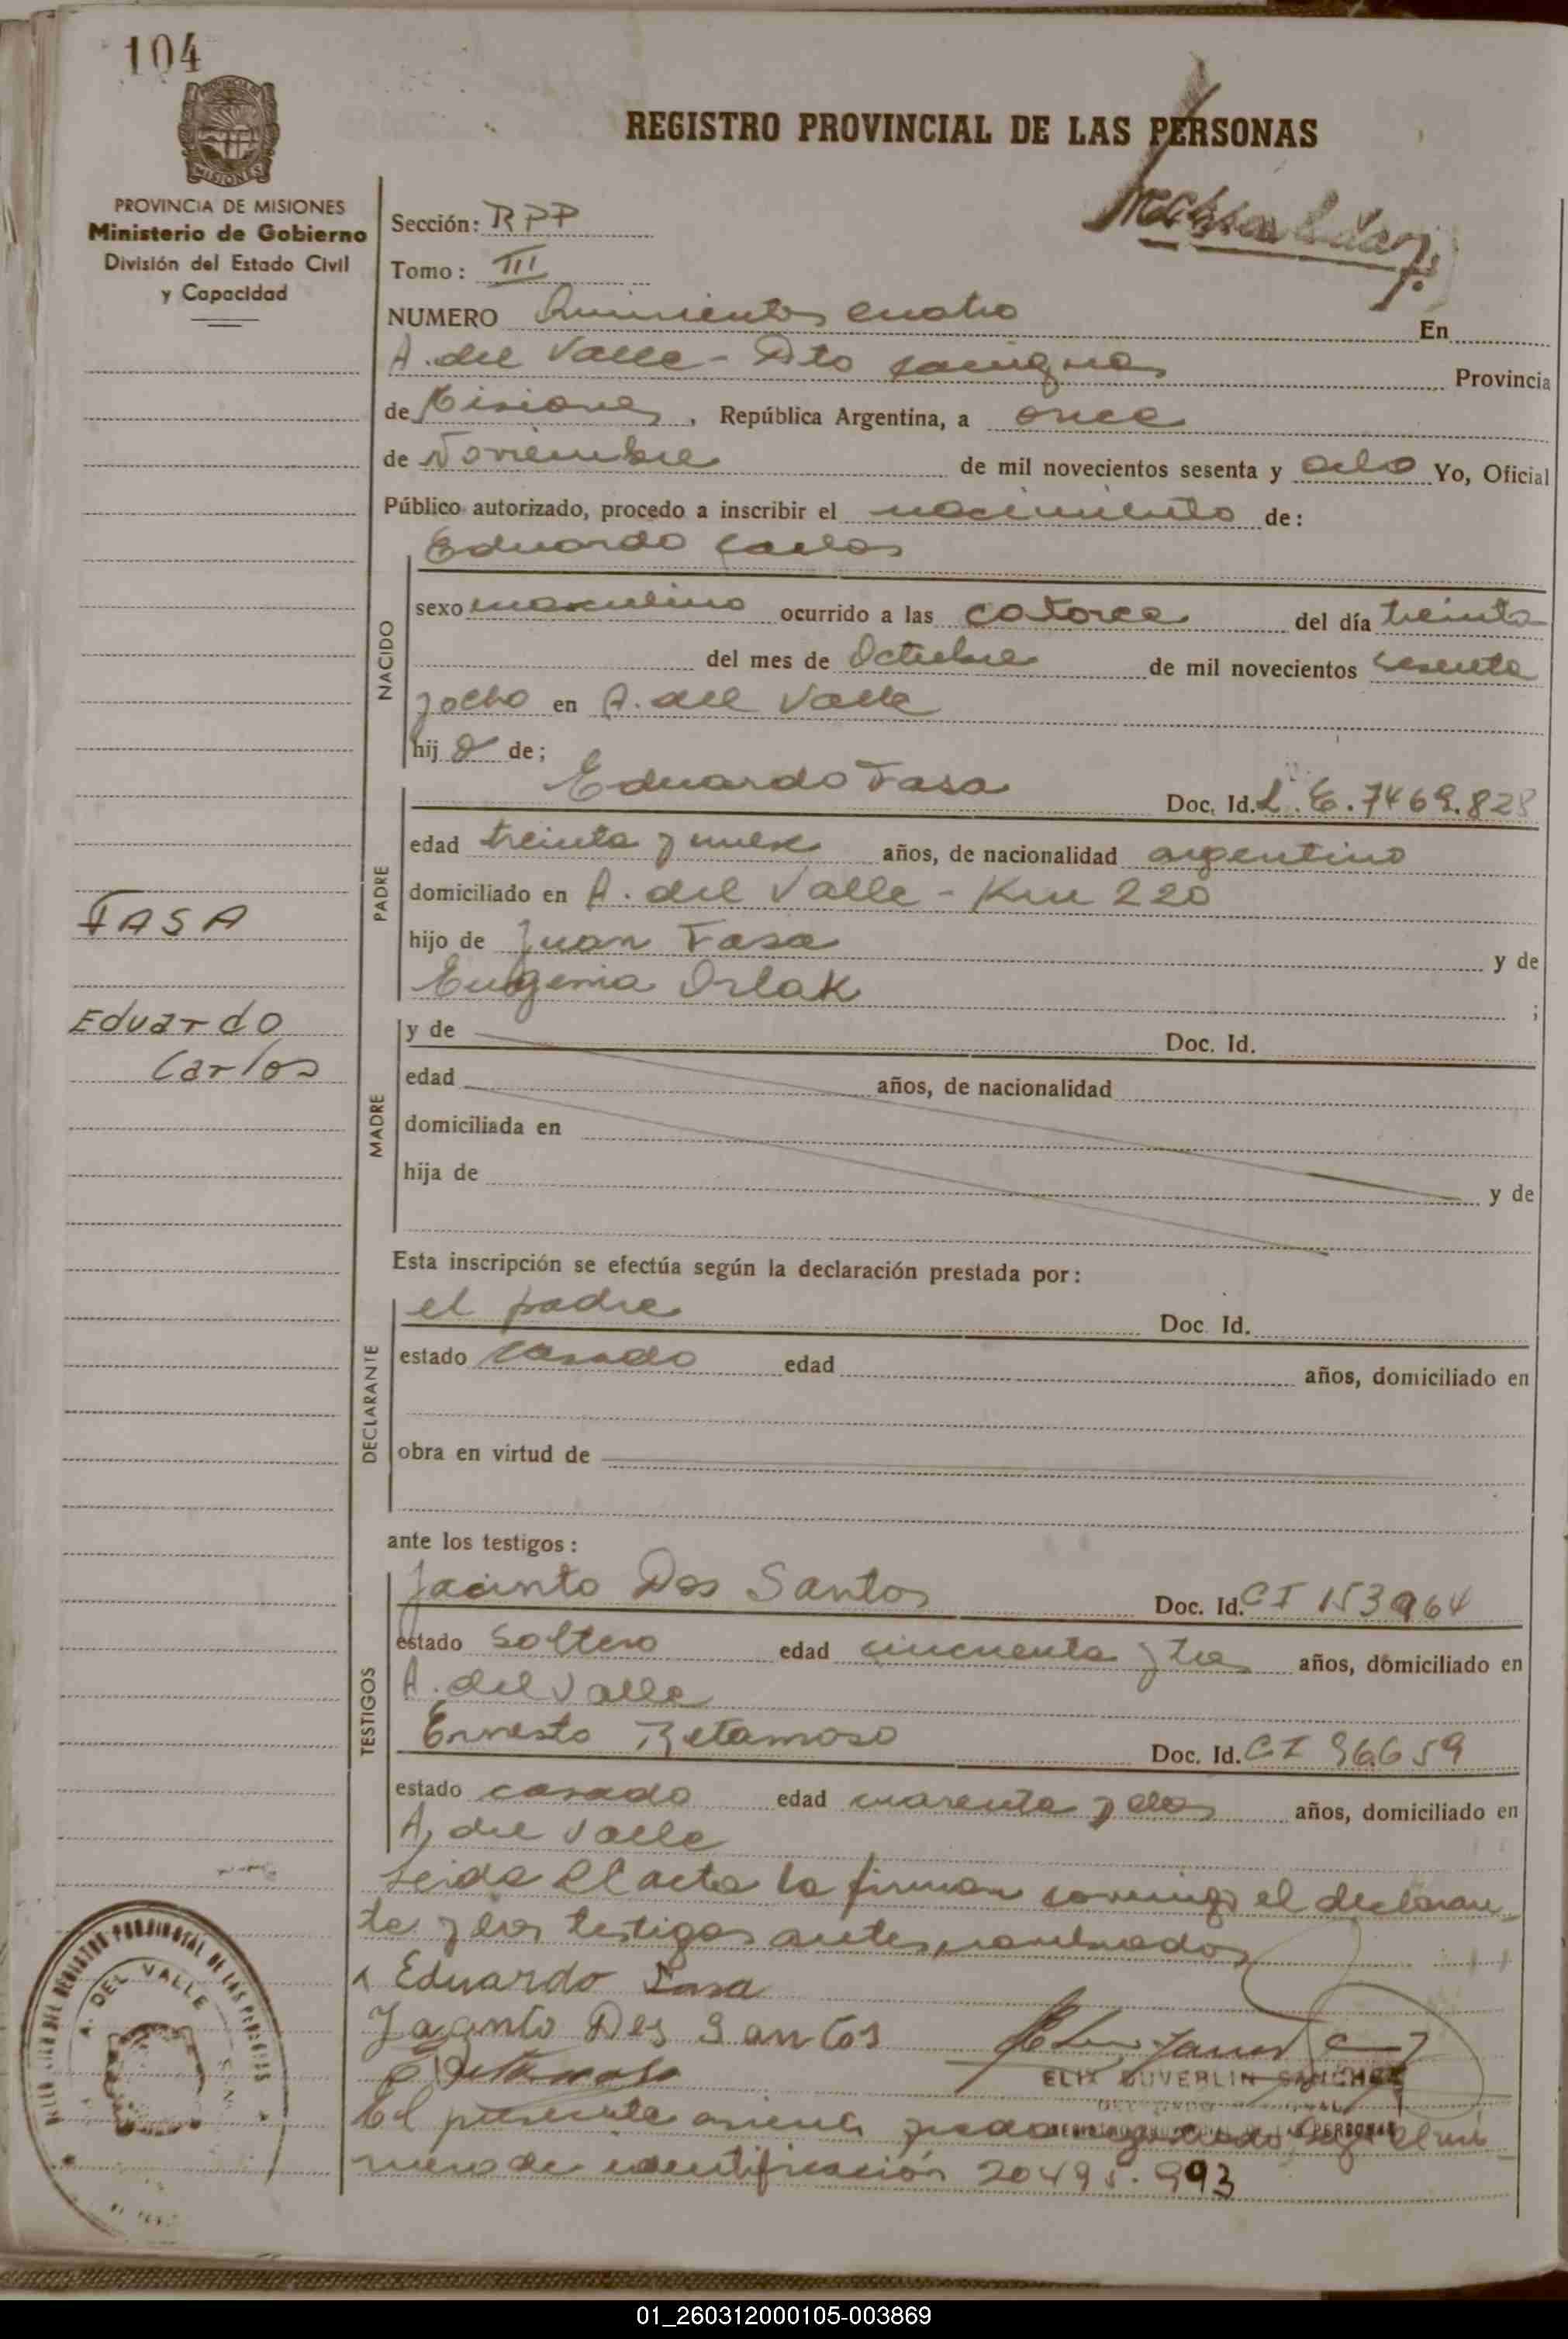 104
REGISTRO PROVINCIAL DE LAS PERSONAS
PROVINCIA DE MISIONES
MISIONES
Ministerio de Gobierno
División del Estado Civil
y Capacidad
Sección: RPP
Tomo: III
NUMERO Quinientos cuatro En
A. del Valle - Dto Cainguas Provincia
de Misiones, República Argentina, a once
de Noviembre de mil novecientos sesenta y ocho Yo, Oficial
Público autorizado, procedo a inscribir el nacimiento de:
Eduardo Carlos
NACIDO
sexo masculino ocurrido a las catorce del día treinta
del mes de Octubre de mil novecientos sesenta
y ocho en A. del Valle
hij o de;
Eduardo Tasa Doc. Id. L.E. 7469.828
PADRE
edad treinta y nueve años, de nacionalidad argentino
domiciliado en A. del Valle - Km 220
hijo de Juan Tasa y de
Eugenia Orlak ;
TASA
Eduardo
Carlos
MADRE
y de Doc. Id.
edad años, de nacionalidad
domiciliada en
hija de y de
Esta inscripción se efectúa según la declaración prestada por:
DECLARANTE
el padre Doc. Id.
estado casado edad años, domiciliado en
obra en virtud de
ante los testigos:
TESTIGOS
Jacinto Dos Santos Doc. Id. CI 153964
estado soltero edad cincuenta y tres años, domiciliado en
A. del Valle
Ernesto Retamoso Doc. Id. CI 96659
estado casado edad cuarenta y dos años, domiciliado en
A. del Valle
Leida el acta la firman conmigo el declaran
te y los testigos antes nombrados
Eduardo Tasa
Jacinto Dos Santos
E Retamoso
ELIX DUVERLIN SANCHEZ
A. DEL VALLE
El presente asiento queda registrado el nú
mero de identificación 20495.993
01_260312000105-003869